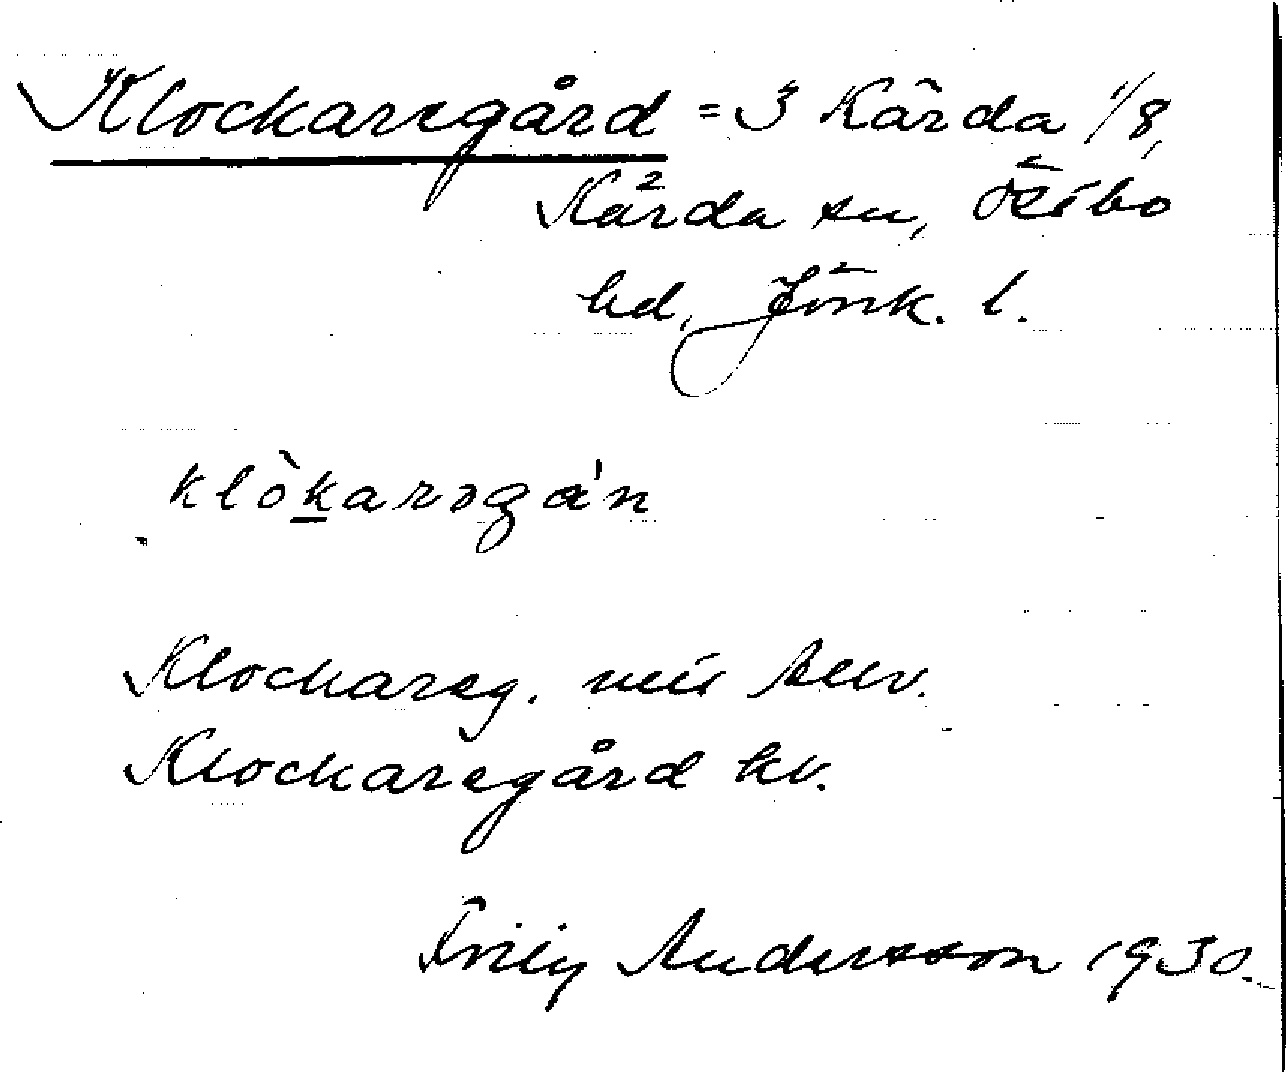 Klockaregård = 3 Kärda 1/8,
Kärda sn, Östbo
hd, Jönk. l.
klòkarəgán
Klockareg.
Klockaregård kv.
Andersson 1930.